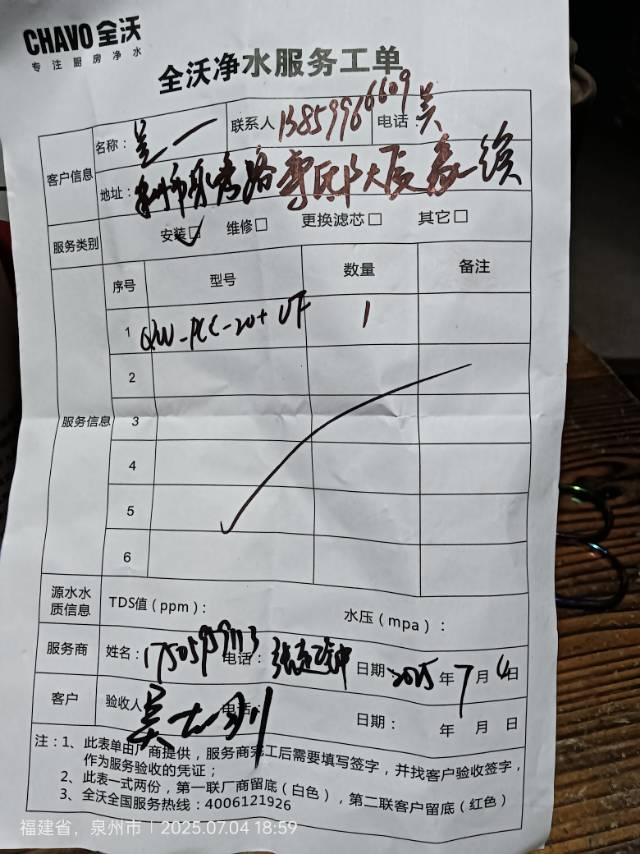 CHAVO全沃
专注厨房净水
全沃净水服务工单
客户信息 名称： 联系人 13859966609 电话： 吴
地址：
服务类别 安装□ 维修□ 更换滤芯□ 其它□
服务信息 序号 型号 数量 备注
1 1
2
3
4
5
6
源水水质信息 TDS值（ppm）： 水压（mpa）：
服务商 姓名： 电话： 日期 2025年7月4日
客户 验收人 吴 电话 日期： 年 月 日
注：1、此表单由厂商提供，服务商完工后需要填写签字，并找客户验收签字，
作为服务验收的凭证；
2、此表一式两份，第一联厂商留底（白色），第二联客户留底（红色）
3、全沃全国服务热线：4006121926
福建省，泉州市 | 2025.07.04 18:59